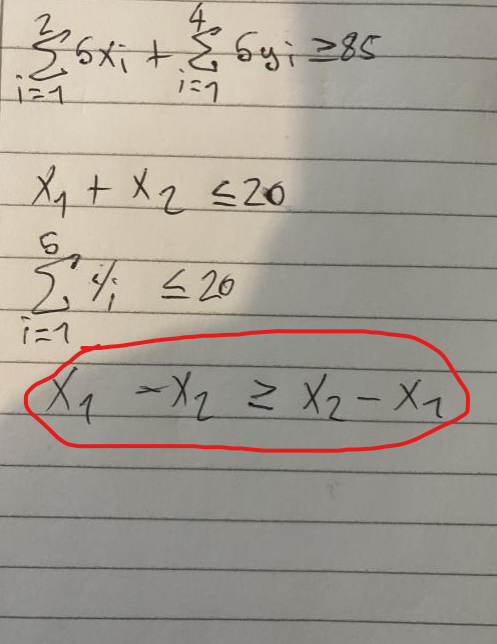 \sum_{i=1}^{2} 5x_i + \sum_{i=1}^{4} 5y_i ≥ 85
x_1 + x_2 ≤ 20
\sum_{i=1}^{5} y_i ≤ 20
x_1 - x_2 ≥ x_2 - x_1